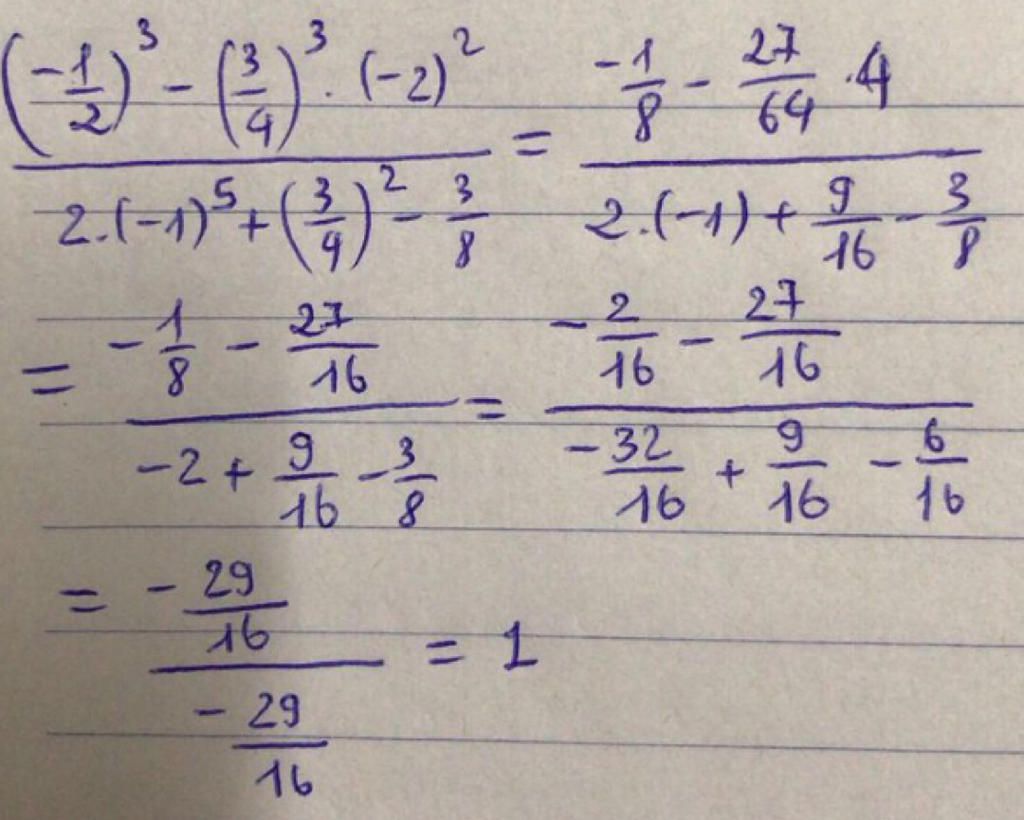 \frac{\left(-\frac{1}{2}\right)^3 - \left(\frac{3}{4}\right)^3 \cdot (-2)^2}{2 \cdot (-1)^5 + \left(\frac{3}{4}\right)^2 - \frac{3}{8}} = \frac{-\frac{1}{8} - \frac{27}{64} \cdot 4}{2 \cdot (-1) + \frac{9}{16} - \frac{3}{8}}
= \frac{-\frac{1}{8} - \frac{27}{16}}{-2 + \frac{9}{16} - \frac{3}{8}} = \frac{-\frac{2}{16} - \frac{27}{16}}{-\frac{32}{16} + \frac{9}{16} - \frac{6}{16}}
= \frac{-\frac{29}{16}}{-\frac{29}{16}} = 1